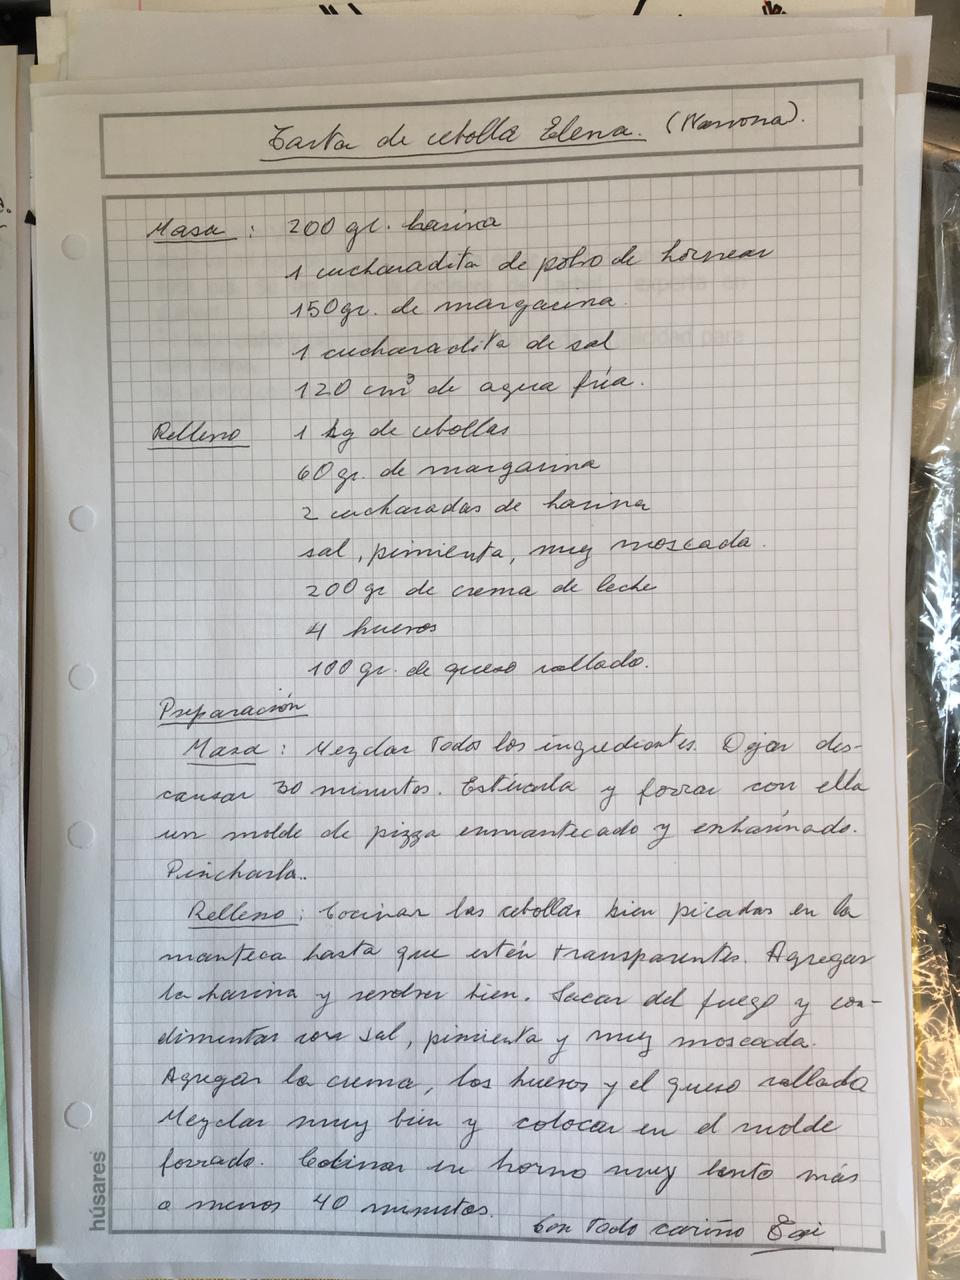 Tarta de cebolla Elena.
Masa : 200 gr. harina
1 cucharadita de polvo de hornear
150 gr. de margarina
1 cucharadita de sal
120 cm³ de agua fría.
Relleno 1 kg de cebollas
60 gr. de margarina
2 cucharadas de harina
sal, pimienta, nuez moscada.
200 gr de crema de leche
4 huevos
100 gr. de queso rallado.
Preparación
Masa : Mezclar todos los ingredientes. Dejar des-
cansar 30 minutos. Estirarla y forrar con ella
un molde de pizza enmantecado y enharinado.
Pincharla..
Relleno : Cocinar las cebollas bien picadas en la
manteca hasta que estén transparentes. Agregar
la harina y revolver bien. Sacar del fuego y con-
dimentar con sal, pimienta y nuez moscada.
Agregar la crema, los huevos y el queso rallado
Mezclar muy bien y colocar en el molde
forrado. Cocinar en horno muy lento más
o menos 40 minutos.
Con todo cariño
húsares